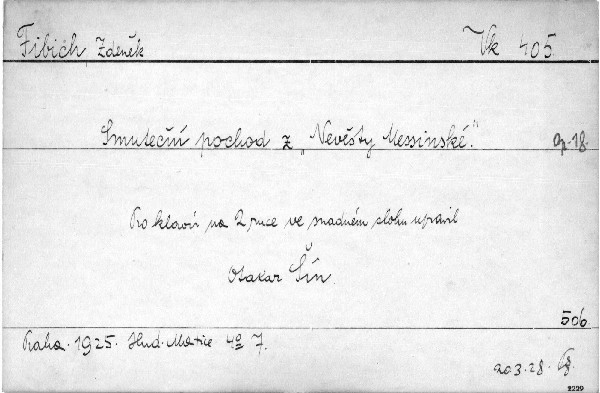 Fibich Zdeněk Vk 405
Smuteční pochod z „Nevěsty Messinské." op. 18.
Pro klavír na 2 ruce ve snadném slohu upravil
Otakar Šín
506
Praha. 1925. Hud. Matice 4º 7.
20.3.28.
2229